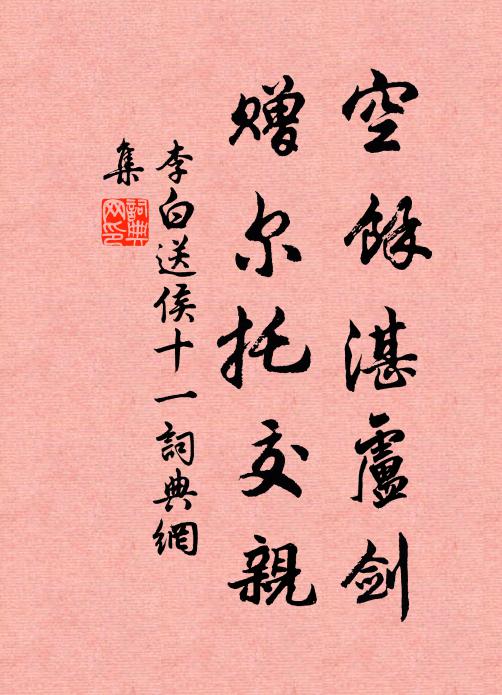 空餘湛盧剑
赠尔托交親
李白送侯十一詞典網
集
詞典
网印